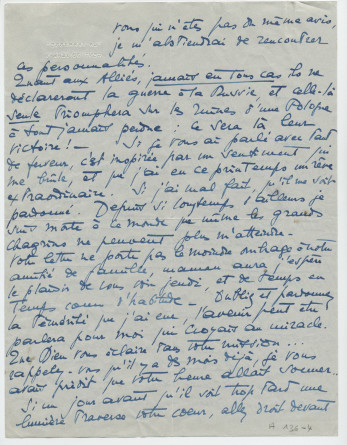 vous qui n'êtes pas du même avis,
je m'abstiendrai de rencontrer
ces personnalités.
Quant aux Alliés, jamais en tous cas ils ne
déclareront la guerre à la Russie et celle-là
seule triomphera sur les ruines d'une Pologne
à tout jamais perdue : ce sera là leur
victoire ! — Si je vous ai parlé avec tant
de ferveur, c'est inspirée par un sentiment qui
me brûle, et que j'ai en ce printemps un rêve
extraordinaire. Si j'ai mal fait, qu'il me soit
pardonné. Depuis si longtemps d'ailleurs je
suis morte à le monde que même les grands
chagrins ne peuvent plus m'atteindre.
Votre lettre ne porte pas le moindre ombrage à notre
amitié de famille, maman aura, j'espère
le plaisir de vous voir jeudi, et de temps en
temps comme d'habitude. — Oubliez et pardonnez
la témérité que j'ai eue, l'avenir peut être
parlera pour moi qui croyais au miracle.
Que Dieu vous éclaire dans votre mission...
rappelez-vous qu'il y a des mois déjà, je vous
avais prédit que votre heure allait sonner..
Si un jour avant qu'il soit trop tard une
lumière traverse votre coeur, allez droit devant
A 136-4